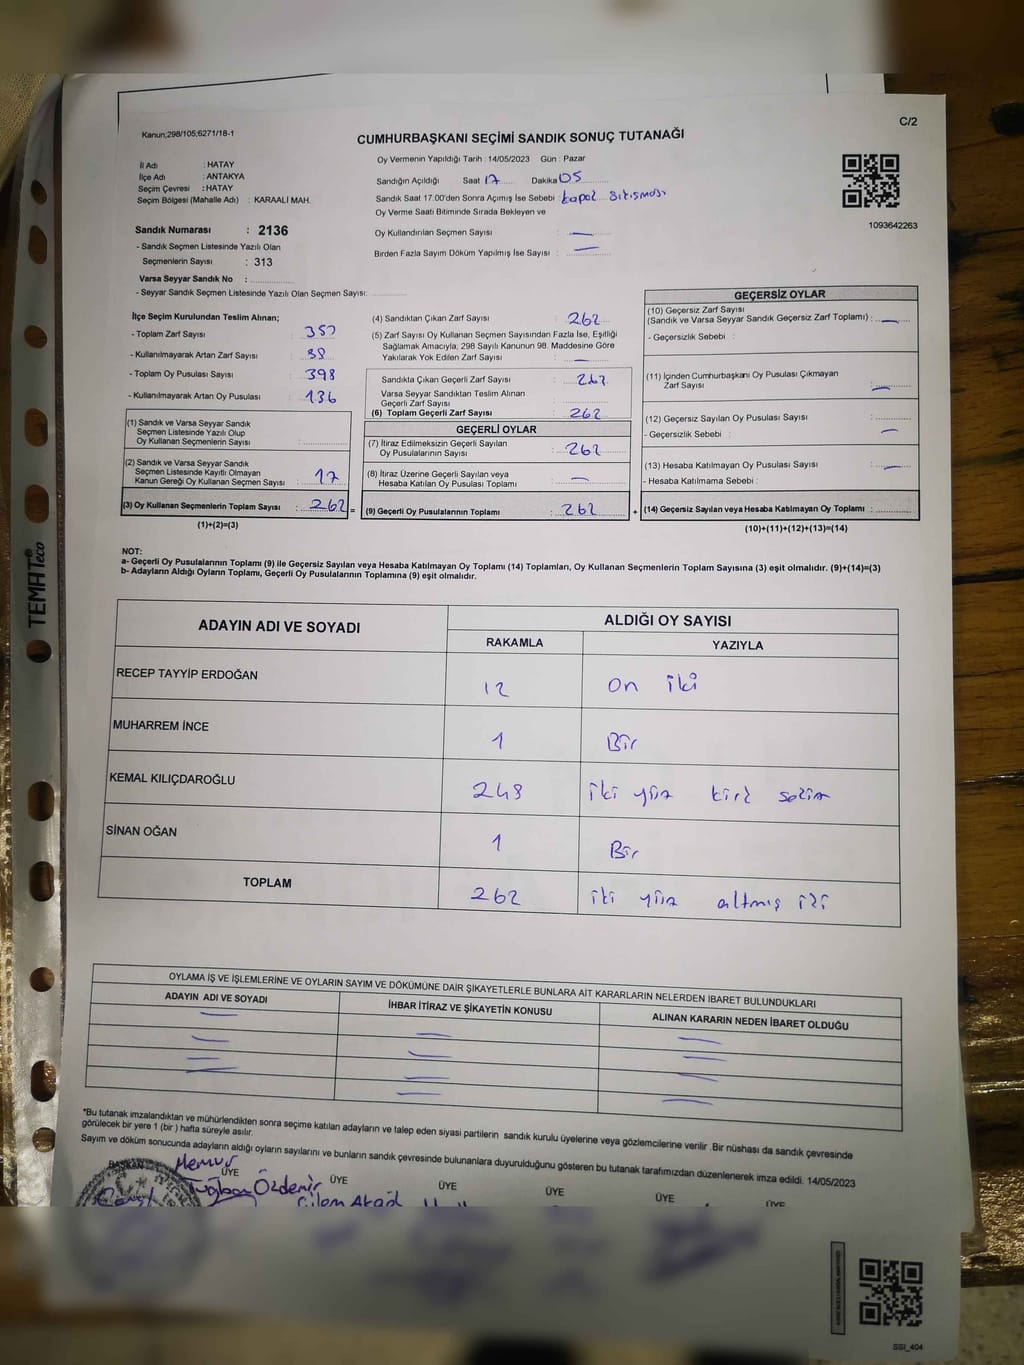 C/2
Kanun;298/105;6271/18-1
CUMHURBAŞKANI SEÇİMİ SANDIK SONUÇ TUTANAĞI
İl Adı : HATAY
İlçe Adı : ANTAKYA
Seçim Çevresi : HATAY
Seçim Bölgesi (Mahalle Adı) : KARAALİ MAH.
Oy Vermenin Yapıldığı Tarih : 14/05/2023 Gün : Pazar
Sandığın Açıldığı Saat 17 Dakika 05
Sandık Saat 17.00'den Sonra Açımış İse Sebebi :
Oy Verme Saati Bitiminde Sırada Bekleyen ve
Oy Kullandırılan Seçmen Sayısı : —
Birden Fazla Sayım Döküm Yapılmış İse Sayısı : —
1093642263
Sandık Numarası : 2136
- Sandık Seçmen Listesinde Yazılı Olan
Seçmenlerin Sayısı : 313
Varsa Seyyar Sandık No :
- Seyyar Sandık Seçmen Listesinde Yazılı Olan Seçmen Sayısı:
İlçe Seçim Kurulundan Teslim Alınan;
- Toplam Zarf Sayısı :
- Kullanılmayarak Artan Zarf Sayısı :
- Toplam Oy Pusulası Sayısı : 398
- Kullanılmayarak Artan Oy Pusulası : 136
(1) Sandık ve Varsa Seyyar Sandık
Seçmen Listesinde Yazılı Olup
Oy Kullanan Seçmenlerin Sayısı :
(2) Sandık ve Varsa Seyyar Sandık
Seçmen Listesinde Kayıtlı Olmayan
Kanun Gereği Oy Kullanan Seçmen Sayısı : 17
(3) Oy Kullanan Seçmenlerin Toplam Sayısı : 262 =
(1)+(2)=(3)
(4) Sandıktan Çıkan Zarf Sayısı : 262
(5) Zarf Sayısı Oy Kullanan Seçmen Sayısından Fazla İse, Eşitliği
Sağlamak Amacıyla; 298 Sayılı Kanunun 98. Maddesine Göre
Yakılarak Yok Edilen Zarf Sayısı : —
Sandıkta Çıkan Geçerli Zarf Sayısı : 262
Varsa Seyyar Sandıktan Teslim Alınan
Geçerli Zarf Sayısı :
(6) Toplam Geçerli Zarf Sayısı : 262
GEÇERLİ OYLAR
(7) İtiraz Edilmeksizin Geçerli Sayılan
Oy Pusulalarının Sayısı : 262
(8) İtiraz Üzerine Geçerli Sayılan veya
Hesaba Katılan Oy Pusulası Toplamı : —
(9) Geçerli Oy Pusulalarının Toplamı : 262 +
GEÇERSİZ OYLAR
(10) Geçersiz Zarf Sayısı
(Sandık ve Varsa Seyyar Sandık Geçersiz Zarf Toplamı) : —
- Geçersizlik Sebebi :
(11) İçinden Cumhurbaşkanı Oy Pusulası Çıkmayan
Zarf Sayısı : —
(12) Geçersiz Sayılan Oy Pusulası Sayısı :
- Geçersizlik Sebebi : —
(13) Hesaba Katılmayan Oy Pusulası Sayısı : —
- Hesaba Katılmama Sebebi :
(14) Geçersiz Sayılan veya Hesaba Katılmayan Oy Toplamı :
(10)+(11)+(12)+(13)=(14)
NOT:
a- Geçerli Oy Pusulalarının Toplamı (9) ile Geçersiz Sayılan veya Hesaba Katılmayan Oy Toplamı (14) Toplamları, Oy Kullanan Seçmenlerin Toplam Sayısına (3) eşit olmalıdır. (9)+(14)=(3)
b- Adayların Aldığı Oyların Toplamı, Geçerli Oy Pusulalarının Toplamına (9) eşit olmalıdır.
ADAYIN ADI VE SOYADI ALDIĞI OY SAYISI
RAKAMLA YAZIYLA
RECEP TAYYİP ERDOĞAN 12 on iki
MUHARREM İNCE 1 Bir
KEMAL KILIÇDAROĞLU 248 iki yüz kırk sekiz
SİNAN OĞAN 1 Bir
TOPLAM 262 iki yüz altmış iki
OYLAMA İŞ VE İŞLEMLERİNE VE OYLARIN SAYIM VE DÖKÜMÜNE DAİR ŞİKAYETLERLE BUNLARA AİT KARARLARIN NELERDEN İBARET BULUNDUKLARI
ADAYIN ADI VE SOYADI İHBAR İTİRAZ VE ŞİKAYETİN KONUSU ALINAN KARARIN NEDEN İBARET OLDUĞU
*Bu tutanak imzalandıktan ve mühürlendikten sonra seçime katılan adayların ve talep eden siyasi partilerin sandık kurulu üyelerine veya gözlemcilerine verilir. Bir nüshası da sandık çevresinde
görülecek bir yere 1 (bir ) hafta süreyle asılır.
Sayım ve döküm sonucunda adayların aldığı oyların sayılarını ve bunların sandık çevresinde bulunanlara duyurulduğunu gösteren bu tutanak tarafımızdan düzenlenerek imza edildi. 14/05/2023
BAŞKAN Memur
ÜYE ÜYE ÜYE ÜYE ÜYE ÜYE
Tuğban Özdemir
TEMAT®eco
SSI_404